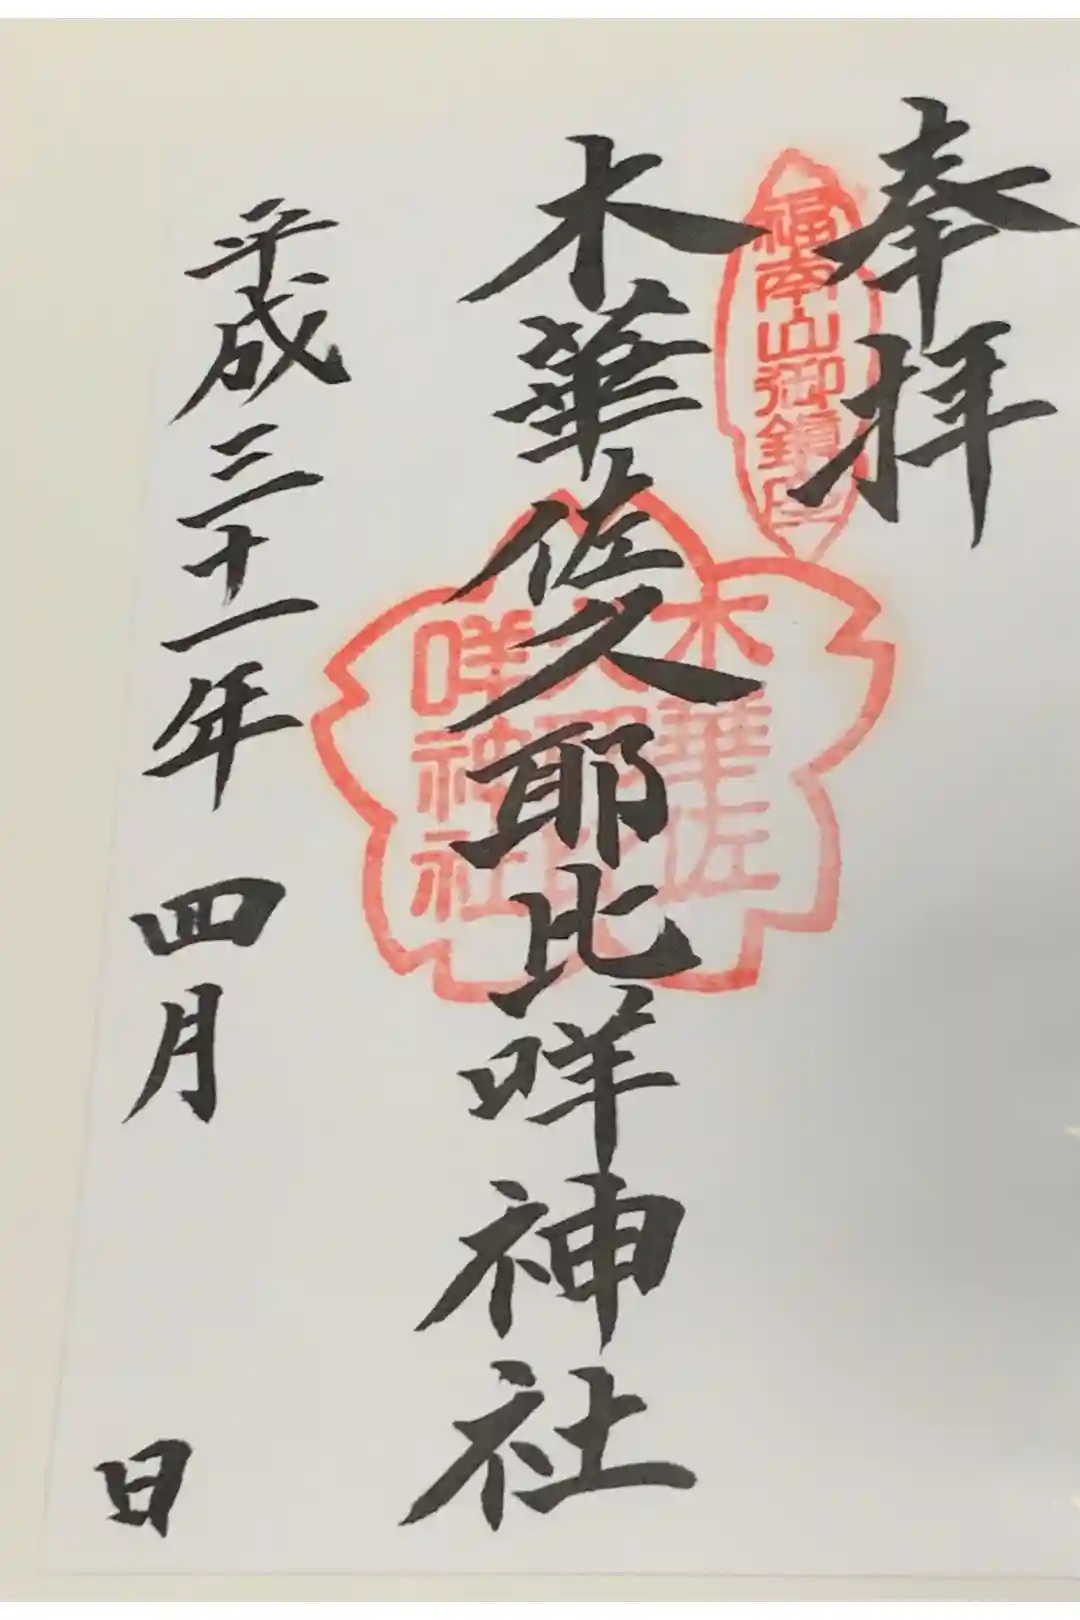 奉拝
福南山御鎮
木華佐久耶比咩神社
木華佐
咩神社
平成三十一年 四月 日